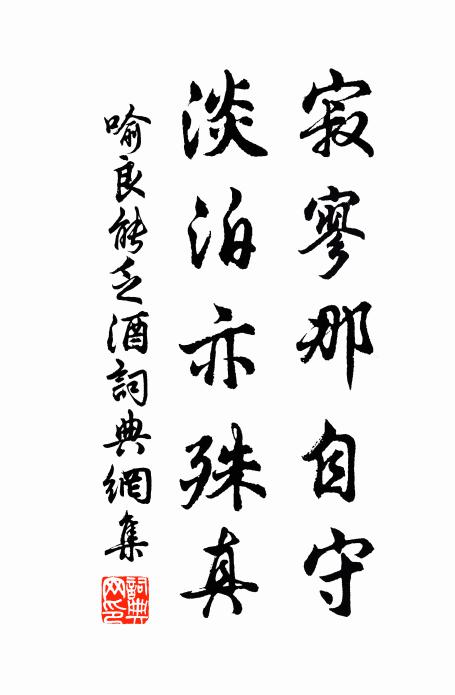 寂寥那自守
淡泊亦殊真
喻良能乏酒詞典網集
詞典網印